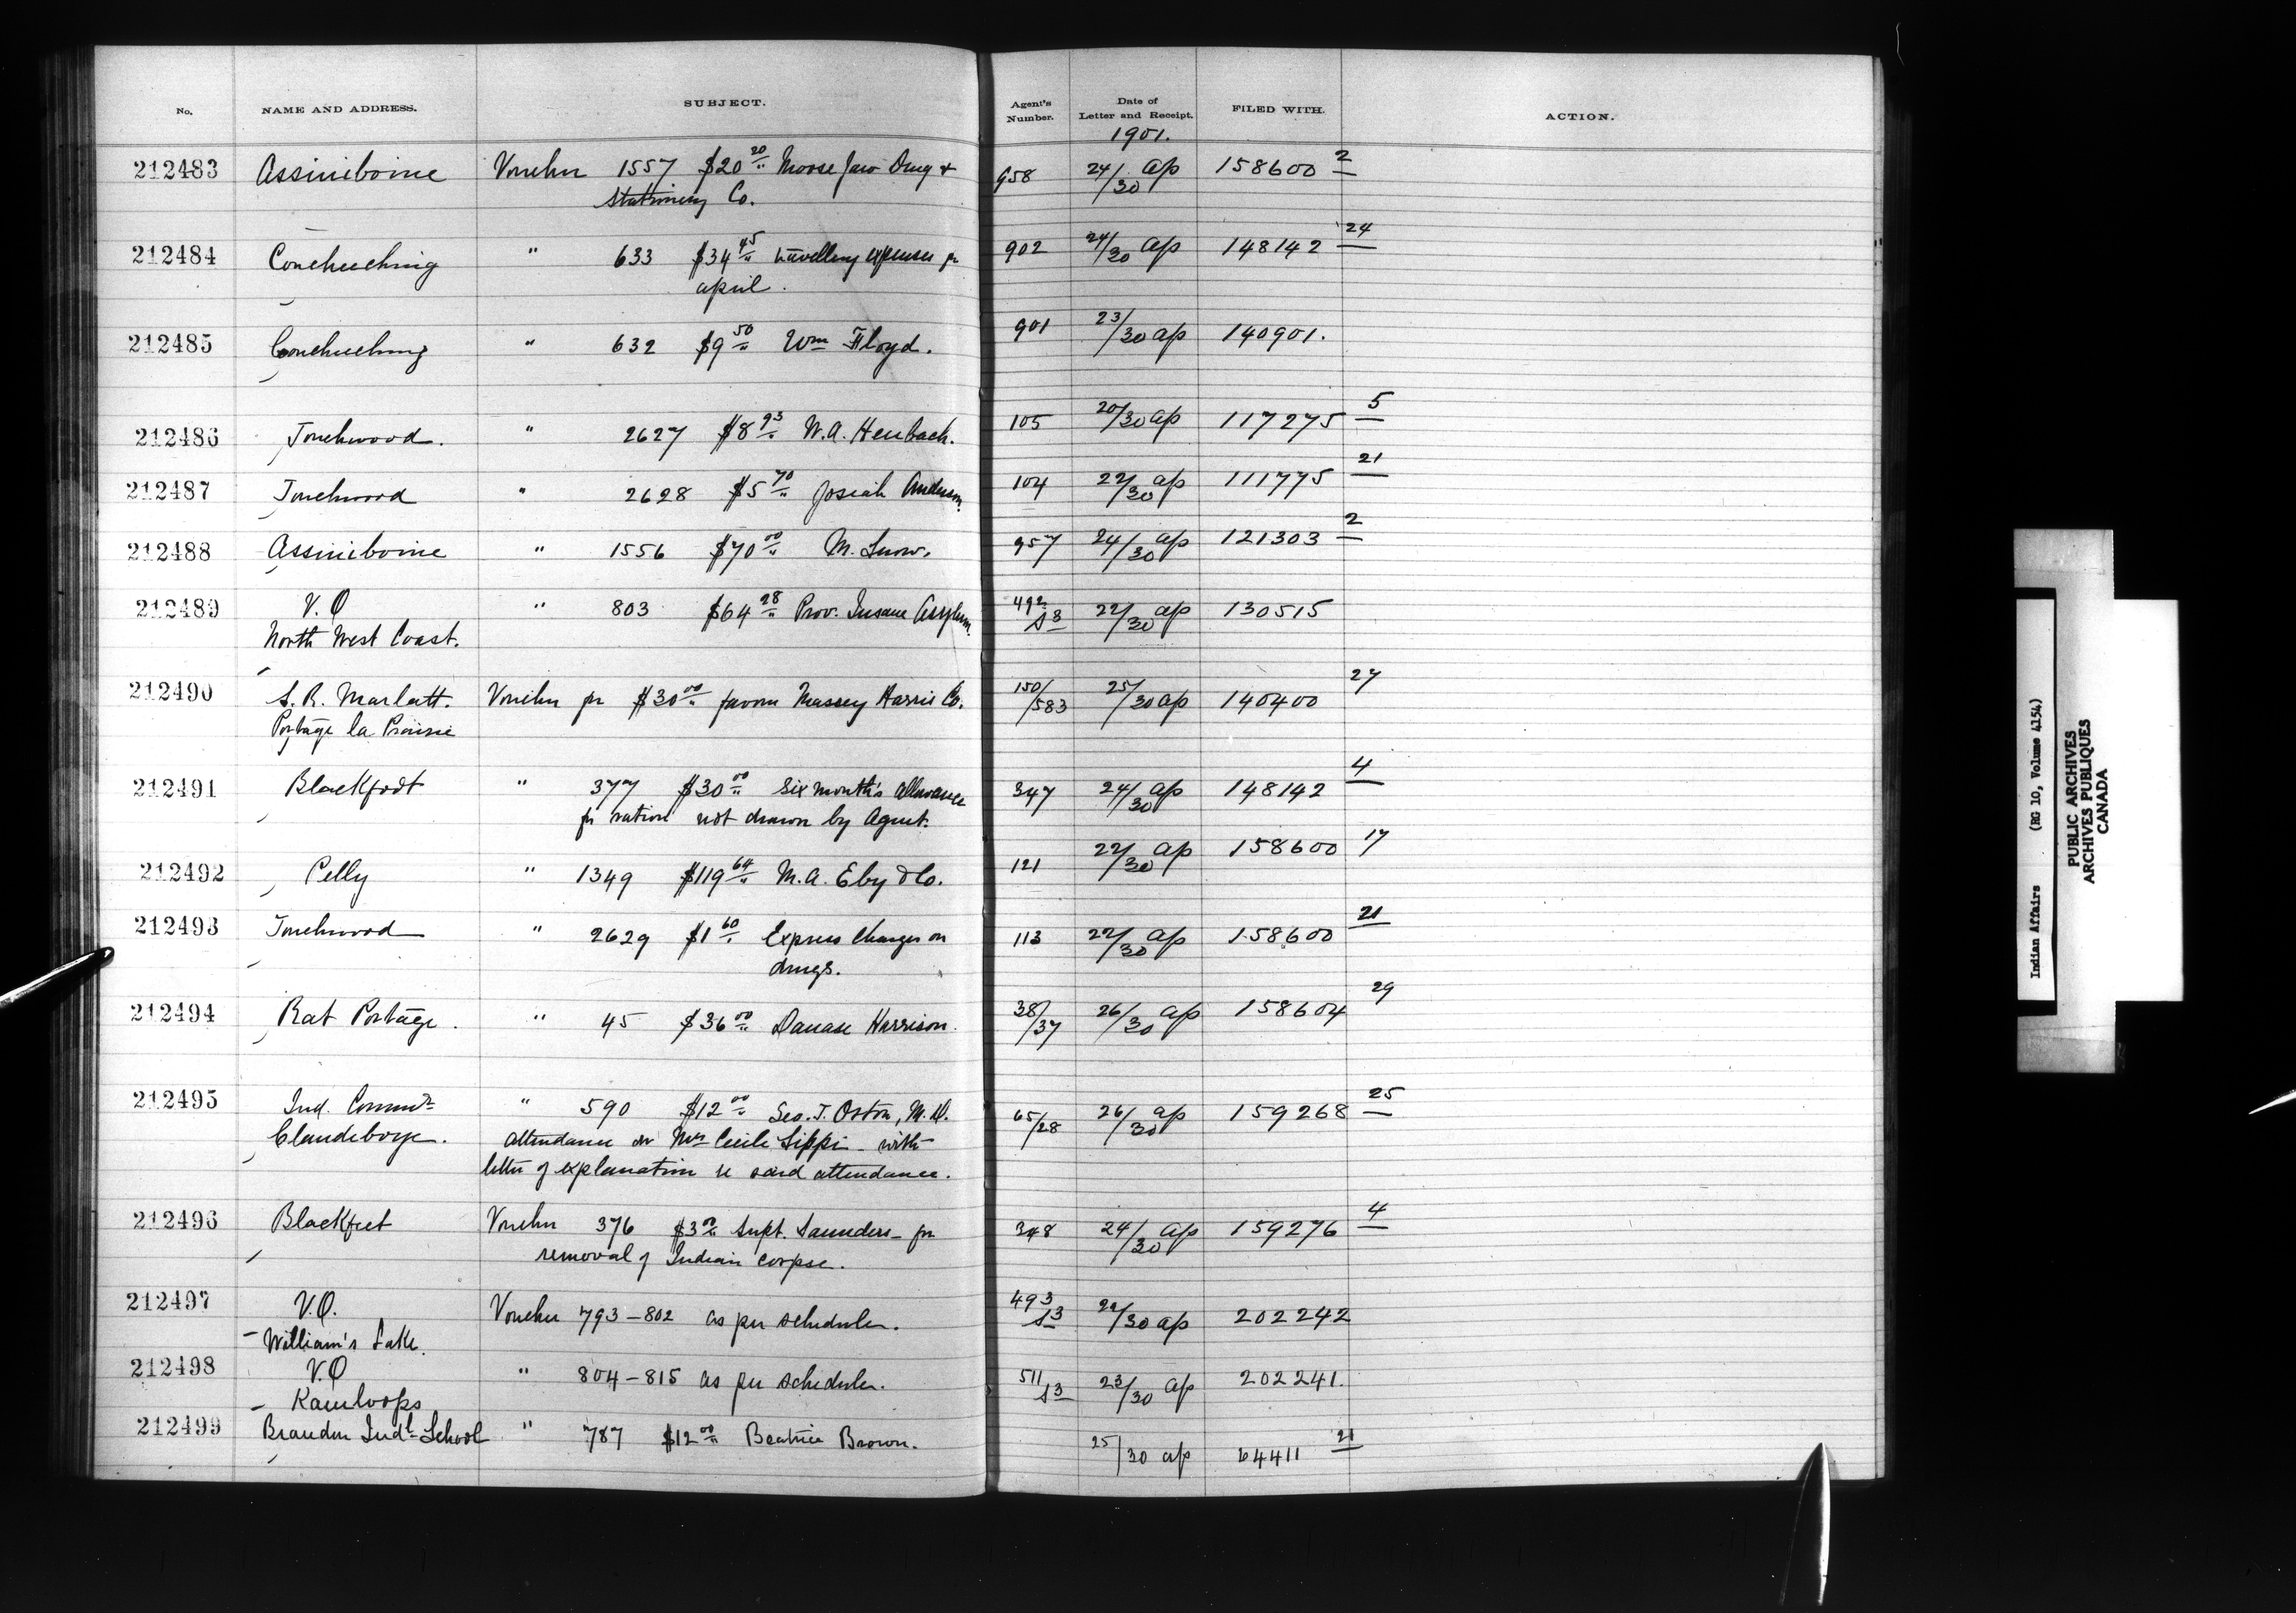 No. NAME AND ADDRESS. SUBJECT. Agent's Number. Date of Letter and Receipt. FILED WITH. ACTION.
1901.
212483 Assiniboine Voucher 1557 $20 20/" Moose Jaw Drug & 958 24/30 Ap 158600 2
Stationery Co.
212484 Couchuching " 633 $34 45/" travelling expenses fr 902 24/30 Ap 148142 24
april.
212485 Couchuching " 632 $9 50/" Wm Floyd. 901 23/30 ap 140901.
212486 Touchwood. " 2627 $8 93/" W.A. Heubach. 105 20/30 ap 117275 5
212487 Touchwood " 2628 $5 70/" Josiah Anderson. 104 22/30 ap 111775 21
212488 Assiniboine " 1556 $70 00/" M. Snow. 957 24/30 ap 121303 2
212489 V.O " 803 $64 28/" Prov. Insane Asylum. 492/S8 22/30 ap 130515
North West Coast.
212490 S. R. Marlatt. Voucher fr $30 00/" favour Massey Harris Co. 150/583 25/30 ap 140400 27
Portage la Prairie
212491 Blackfoot " 377 $30 00/" Six month's allowance 347 24/30 ap 148142 4
fr ration not drawn by Agent.
212492 Pelly " 1349 $119 64/" M.A. Eby & Co. 121 22/30 ap 158600 17
212493 Touchwood " 2629 $1 60/" Express Charges on 113 22/30 ap 158600 21
drugs.
212494 Rat Portage. " 45 $36 00/" Harrison. 38/37 26/30 ap 158604 29
212495 Ind. Commr " 590 $12 00/" Geo. T. Orton, M.D. 65/28 26/30 ap 159268 25
Clandeboye. attendance on Mrs Cecile Sippi - with
letter of explanation re said attendance.
212496 Blackfeet Voucher 376 $3 00/" Supt. Saunders - fr 348 24/30 ap 159276 4
removal of Indian corpse.
212497 V.O. Voucher 793-802 as per schedule. 493/S3 22/30 ap 202242
William's Lake.
212498 V.O " 804-815 as per schedule. 511/S3 23/30 ap 202241.
Kamloops
212499 Brandon Indl School " 787 $12 00/" Beatrice Brown. 25/30 ap 64411 21
Indian Affairs (RG 10, Volume 4154)
PUBLIC ARCHIVES
ARCHIVES PUBLIQUES
CANADA